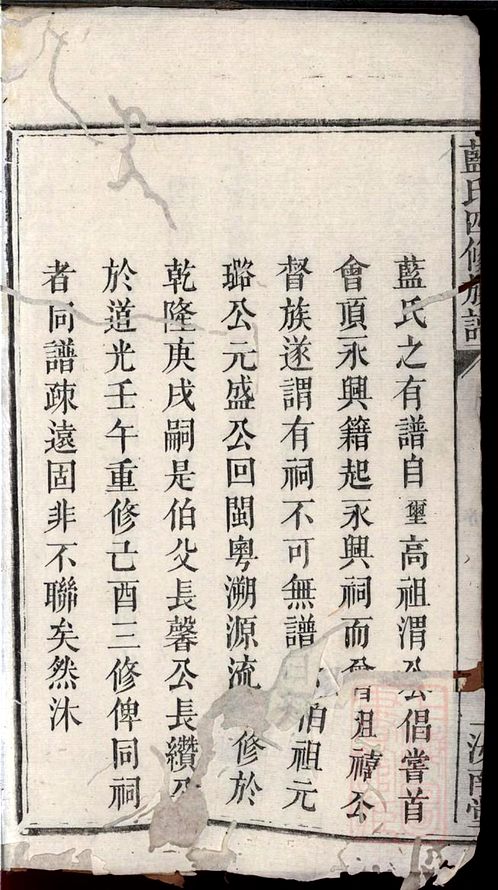 藍氏四修族譜
藍氏之有譜自璽高祖渭公倡嘗首
會頂永興籍起永興祠而曾祖禧公
督族遂謂有祠不可無譜伯祖元
璐公元盛公回閩粵溯源流修於
乾隆庚戌嗣是伯父長馨公長纘公
於道光壬午重修己酉三修俾同祠
者同譜疎遠固非不聯矣然沐